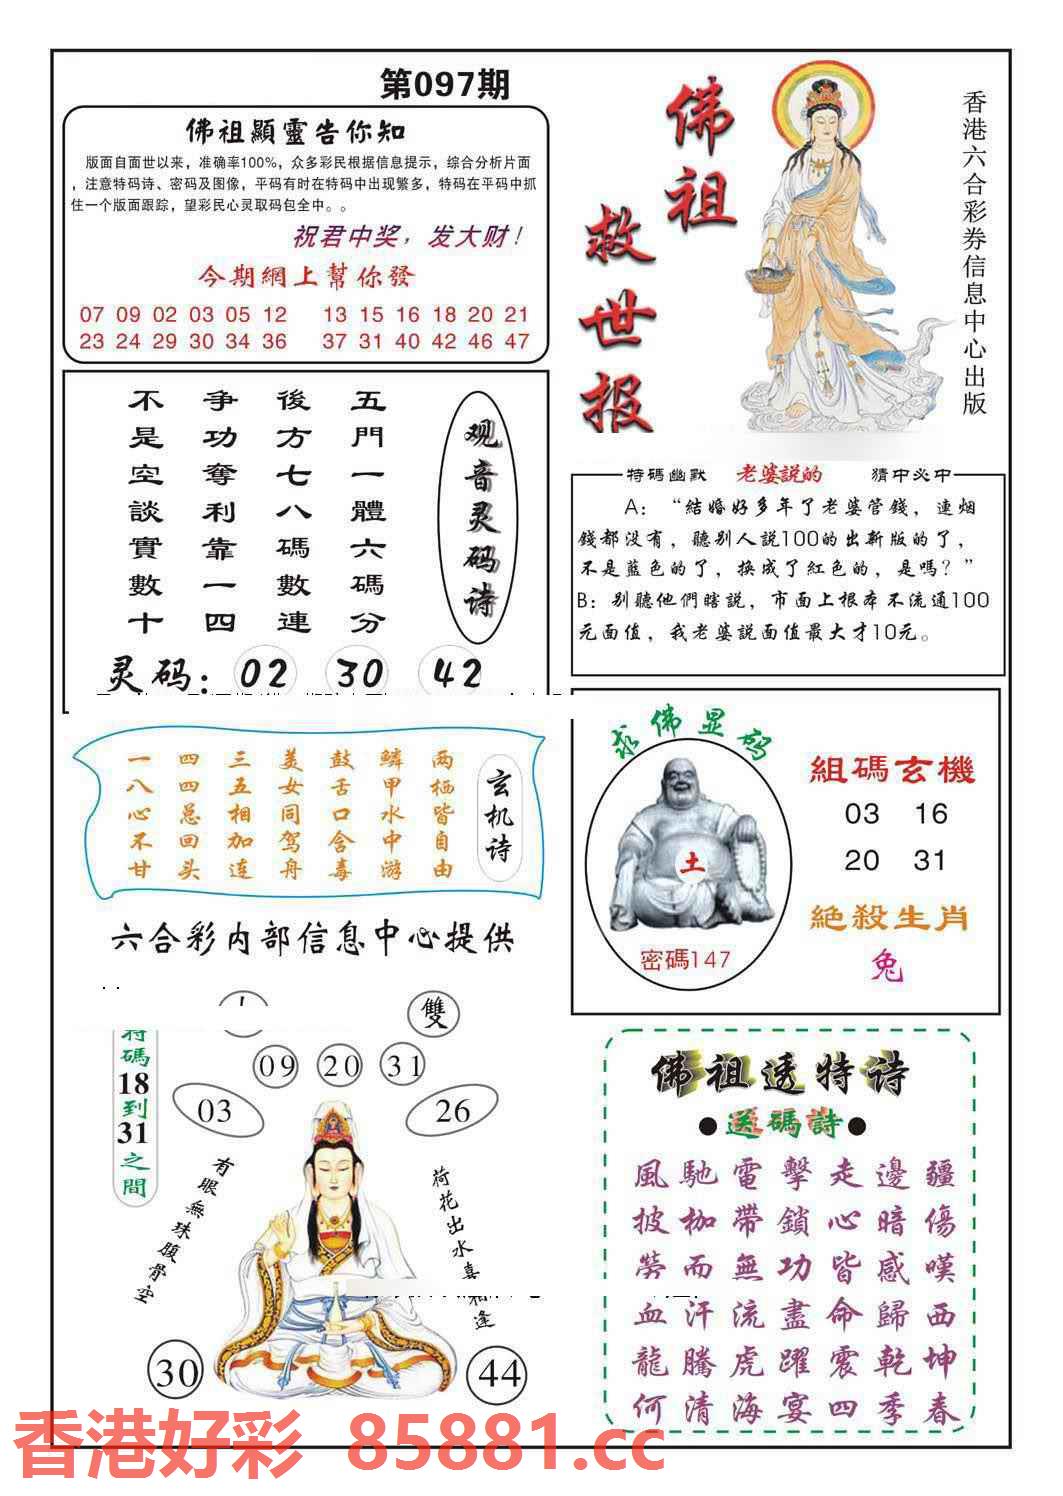 第097期
佛祖顯靈告你知
版面自面世以来，准确率100%，众多彩民根据信息提示，综合分析片面
，注意特码诗、密码及图像，平码有时在特码中出现繁多，特码在平码中抓
住一个版面跟踪，望彩民心灵取码包全中。。
祝君中奖，发大财！
今期網上幫你發
07 09 02 03 05 12 13 15 16 18 20 21
23 24 29 30 34 36 37 31 40 42 46 47
佛祖
救世报
香港六合彩券信息中心出版
观音灵码诗
五門一體六碼分
後方七八碼數連
争功奪利靠一四
不是空談實數十
灵码：02 30 42
特碼幽默 老婆説的 猜中必中
A：“結婚好多年了老婆管錢，連烟
錢都没有，聽别人説100的出新版的了，
不是藍色的了，换成了紅色的，是嗎？”
B：别聽他們瞎説，市面上根本不流通100
元面值，我老婆説面值最大才10元。
玄机诗
两栖皆自由
鳞甲水中游
鼓舌口含毒
美女同驾舟
三五相加连
四四总回头
一八心不甘
六合彩内部信息中心提供
求佛显码
土
密碼147
組碼玄機
03 16
20 31
絶殺生肖
兔
雙
09 20 31
03 26
特碼18到31之間
有眼無珠腹骨空
荷花出水喜相逢
30 44
佛祖透特诗
●送碼詩●
風馳電擊走邊疆
披枷帶鎖心暗傷
勞而無功皆感嘆
血汗流盡命歸西
龍騰虎躍震乾坤
何清海宴四季春
香港好彩 85881.cc